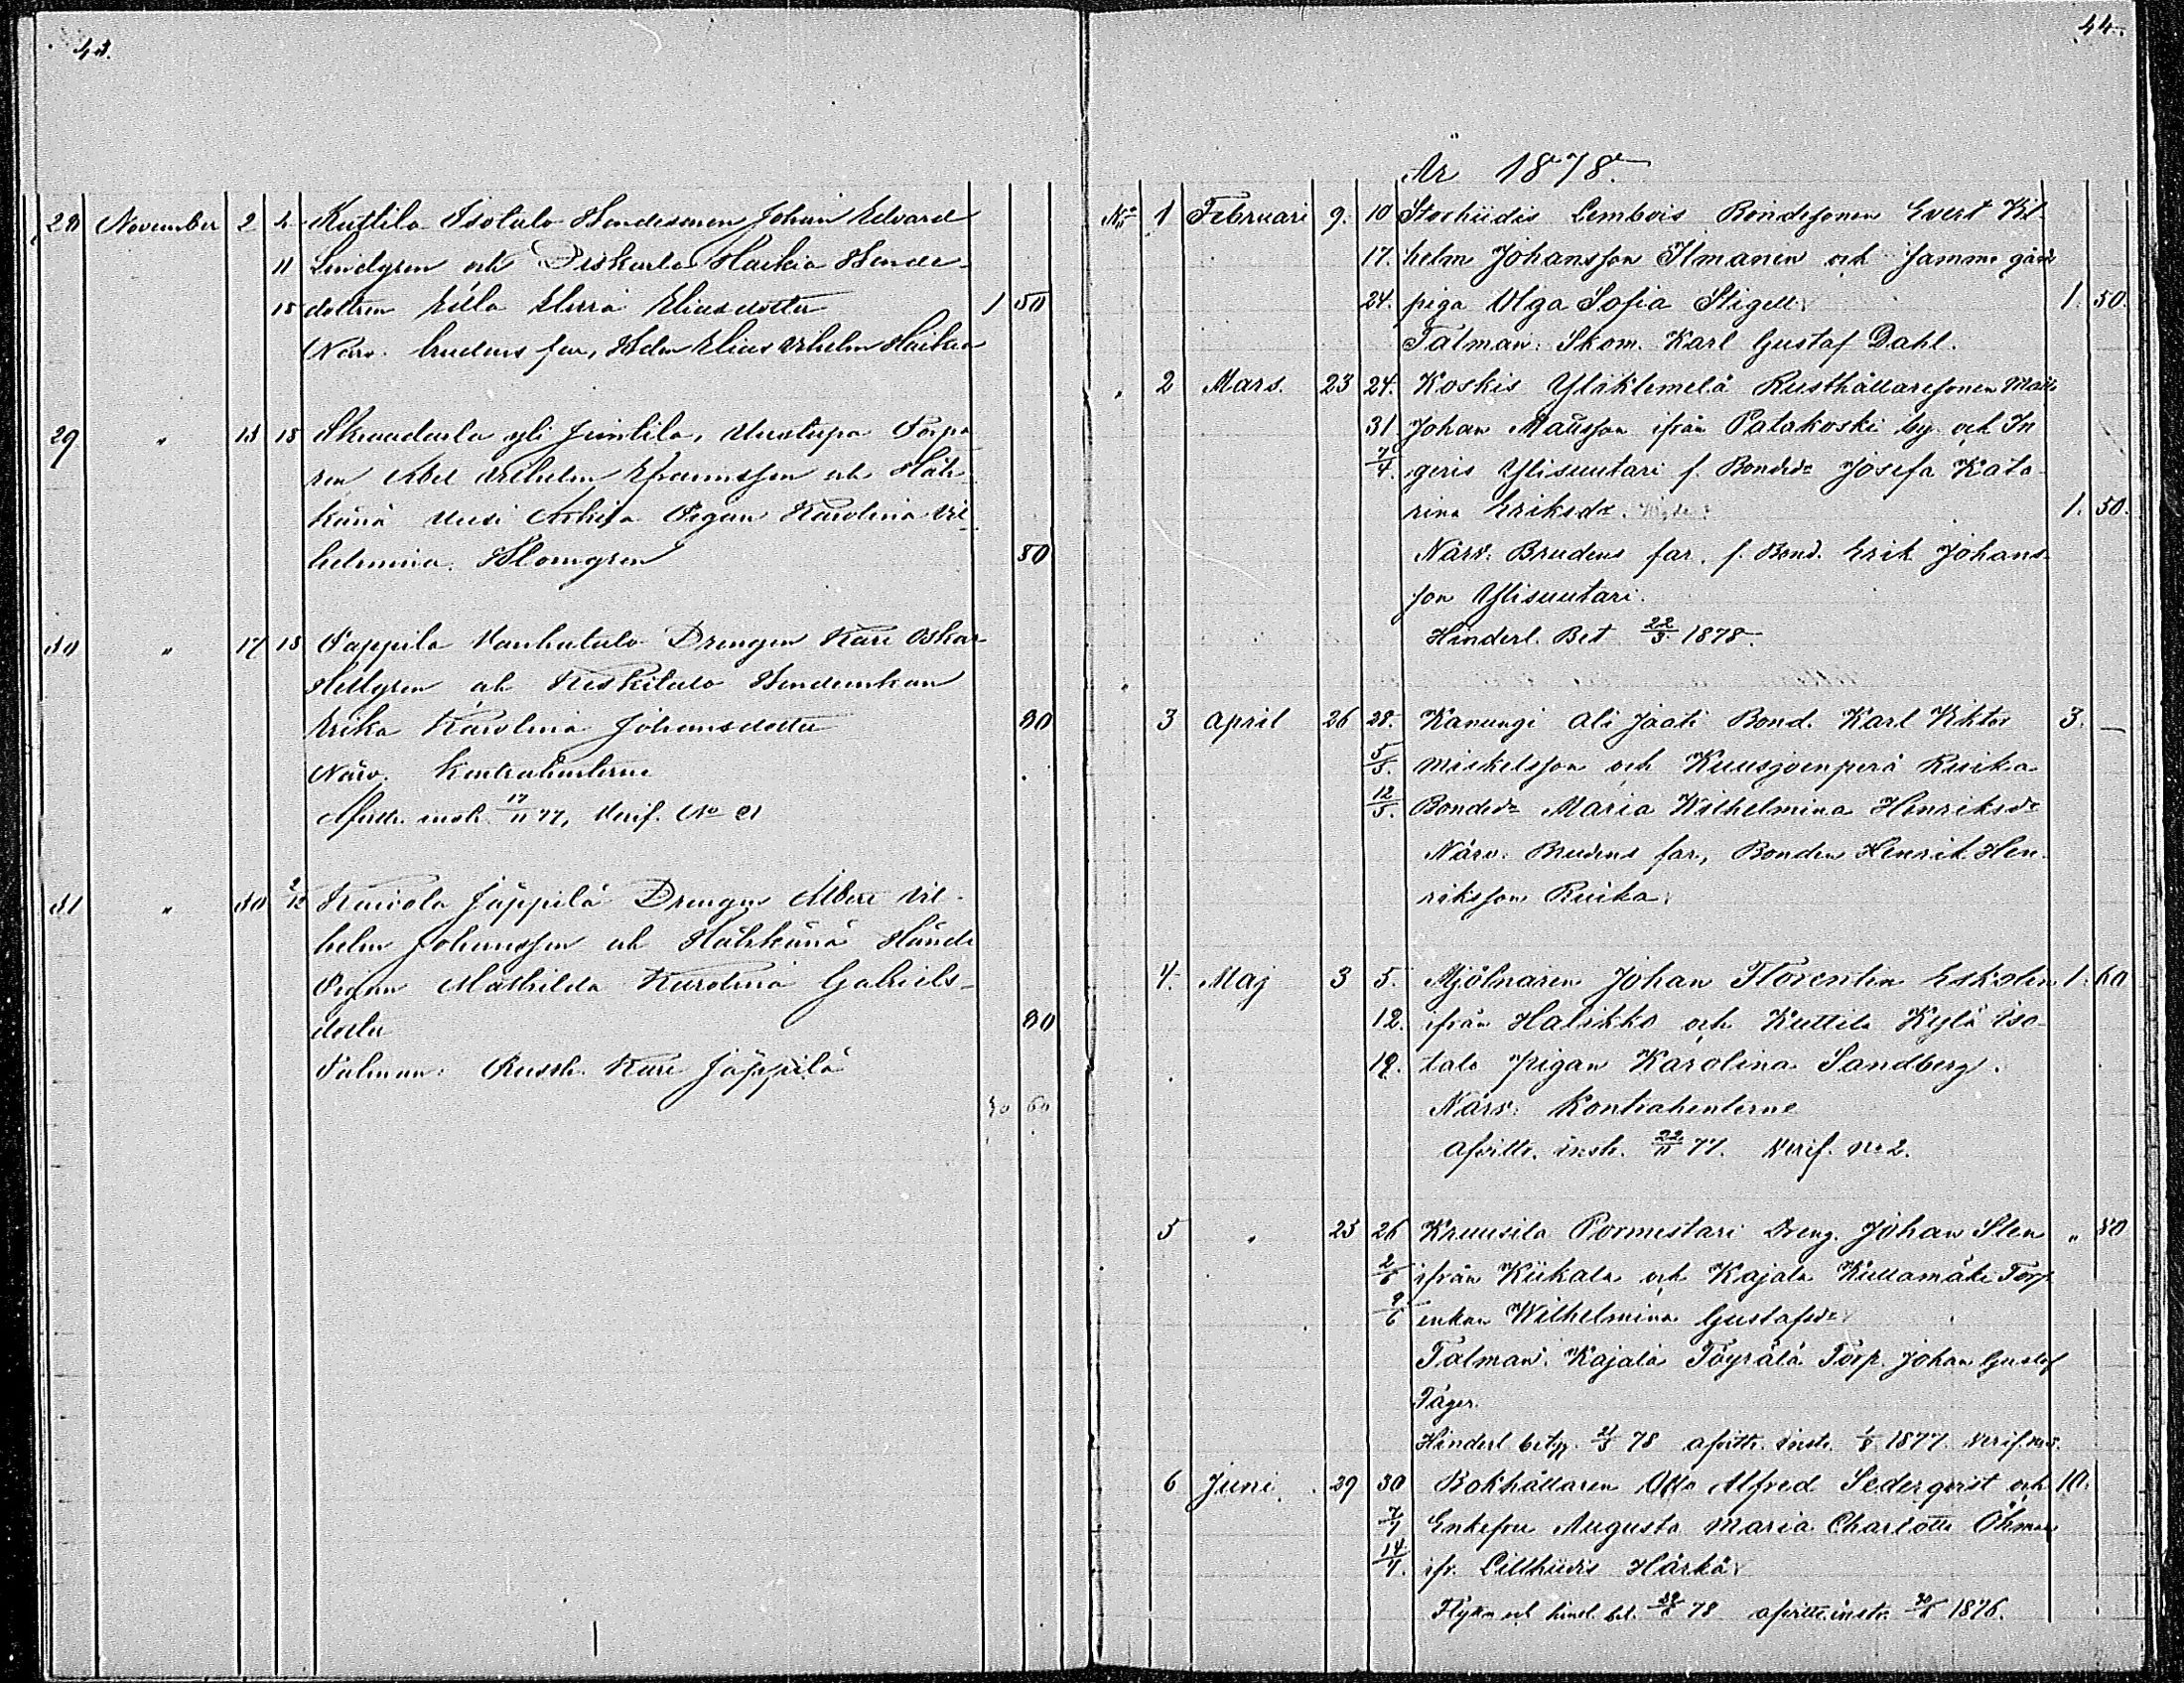 43.
28 November 2 4 Kuttila Isotalo Bondesonen Johan Edvard
11 Lindgren och Diskarla Haikia Bonde-
18 dottren Ulla Maria Eliasdotter 1 50
Närv. brudens far, Bdn Elias Vilhelm Haikia
29 " 13 18 yli Junttila, Torpa-
ren Abel Vilhelm Efraimsson och Häh-
känä Uusi Pigan Karolina Vil-
helmina Blomgren 80
30 " 17 18 Pappila Vanhatalo Drengen Karl Oskar
Hellgren och Keskitalo Bondeenkan
Erika Karolina Johansdotter 80
Närv. Kontrahenterne
Afvittr. instr. 17/11 77, Verif. No 21
31 " 30 2/12 Kaivola Jäppilä Drengen Albert Vil-
helm Johansson och Hähkänä Händi
Pigan Mathilda Karolina Gabriels-
dotter 80
Talman: Rusth. Karl Jäppilä
30 60
44.
År 1878.
No 1 Februari 9. 10 Storhiidis Lembois Bondesonen Evert Vil-
17. helm Johansson Ilmanen och samma gårds
24. piga Olga Sofia Stigell 1. 50.
Talman: Skom. Karl Gustaf Dahl.
" 2 Mars. 23 24. Koskis Yliklemelä Rusthållaresonen Matts
31 Johan Mattsson ifrån Patakoski by och In-
7/4. geris Ylisuutari f. Bondedr Josefa Kata-
rina Eriksdr. 1. 50.
Närv: Brudens far, f. Bond. Erik Johans-
son Ylisuutari.
Hinderl. Bet 22/3 1878.
3 April 26 28. Kanungi Ali Jaati Bond. Karl Viktor 3. —
5/5. Mickelsson och Kuusjoenperä Ruika
12/5. Bondedr Maria Wilhelmina Henriksdr
Närv: Brudens far, Bonden Henrik Hen-
riksson Ruika.
4. Maj 3 5. Mjölnaren Johan Florentin Eskolin 1. 60
12. ifrån Halikko och Kuttila Kylä Iso-
19. talo pigan Karolina Sandberg.
Närv: Kontrahenterne
Afvittr. instr. 22/11 77. Verif. No 2.
5 " 25 26 Kruusila Pormestari Dreng. Johan Sten " 80
2/6 ifrån Kiikala och Kajala Kullamäki Torp.
9/6 enkan Wilhelmina Gustafsdr
Talman: Kajala Töyrälä Torp. Johan Gustaf
Täger.
Hinderl betyg. 21/5 78 afvittr. instr. 1/8 1877. Verif. No 3.
6 Juni. 29 30 Bokhållaren Otto Alfred Sederqvist och 10.
7/7 Enkefru Augusta Maria Charlotta Öhman
14/7. ifr. Lillhiidis Härkä
Flytt och hind. bet. 29/6 78 afvittr. instr. 30/6 1876.